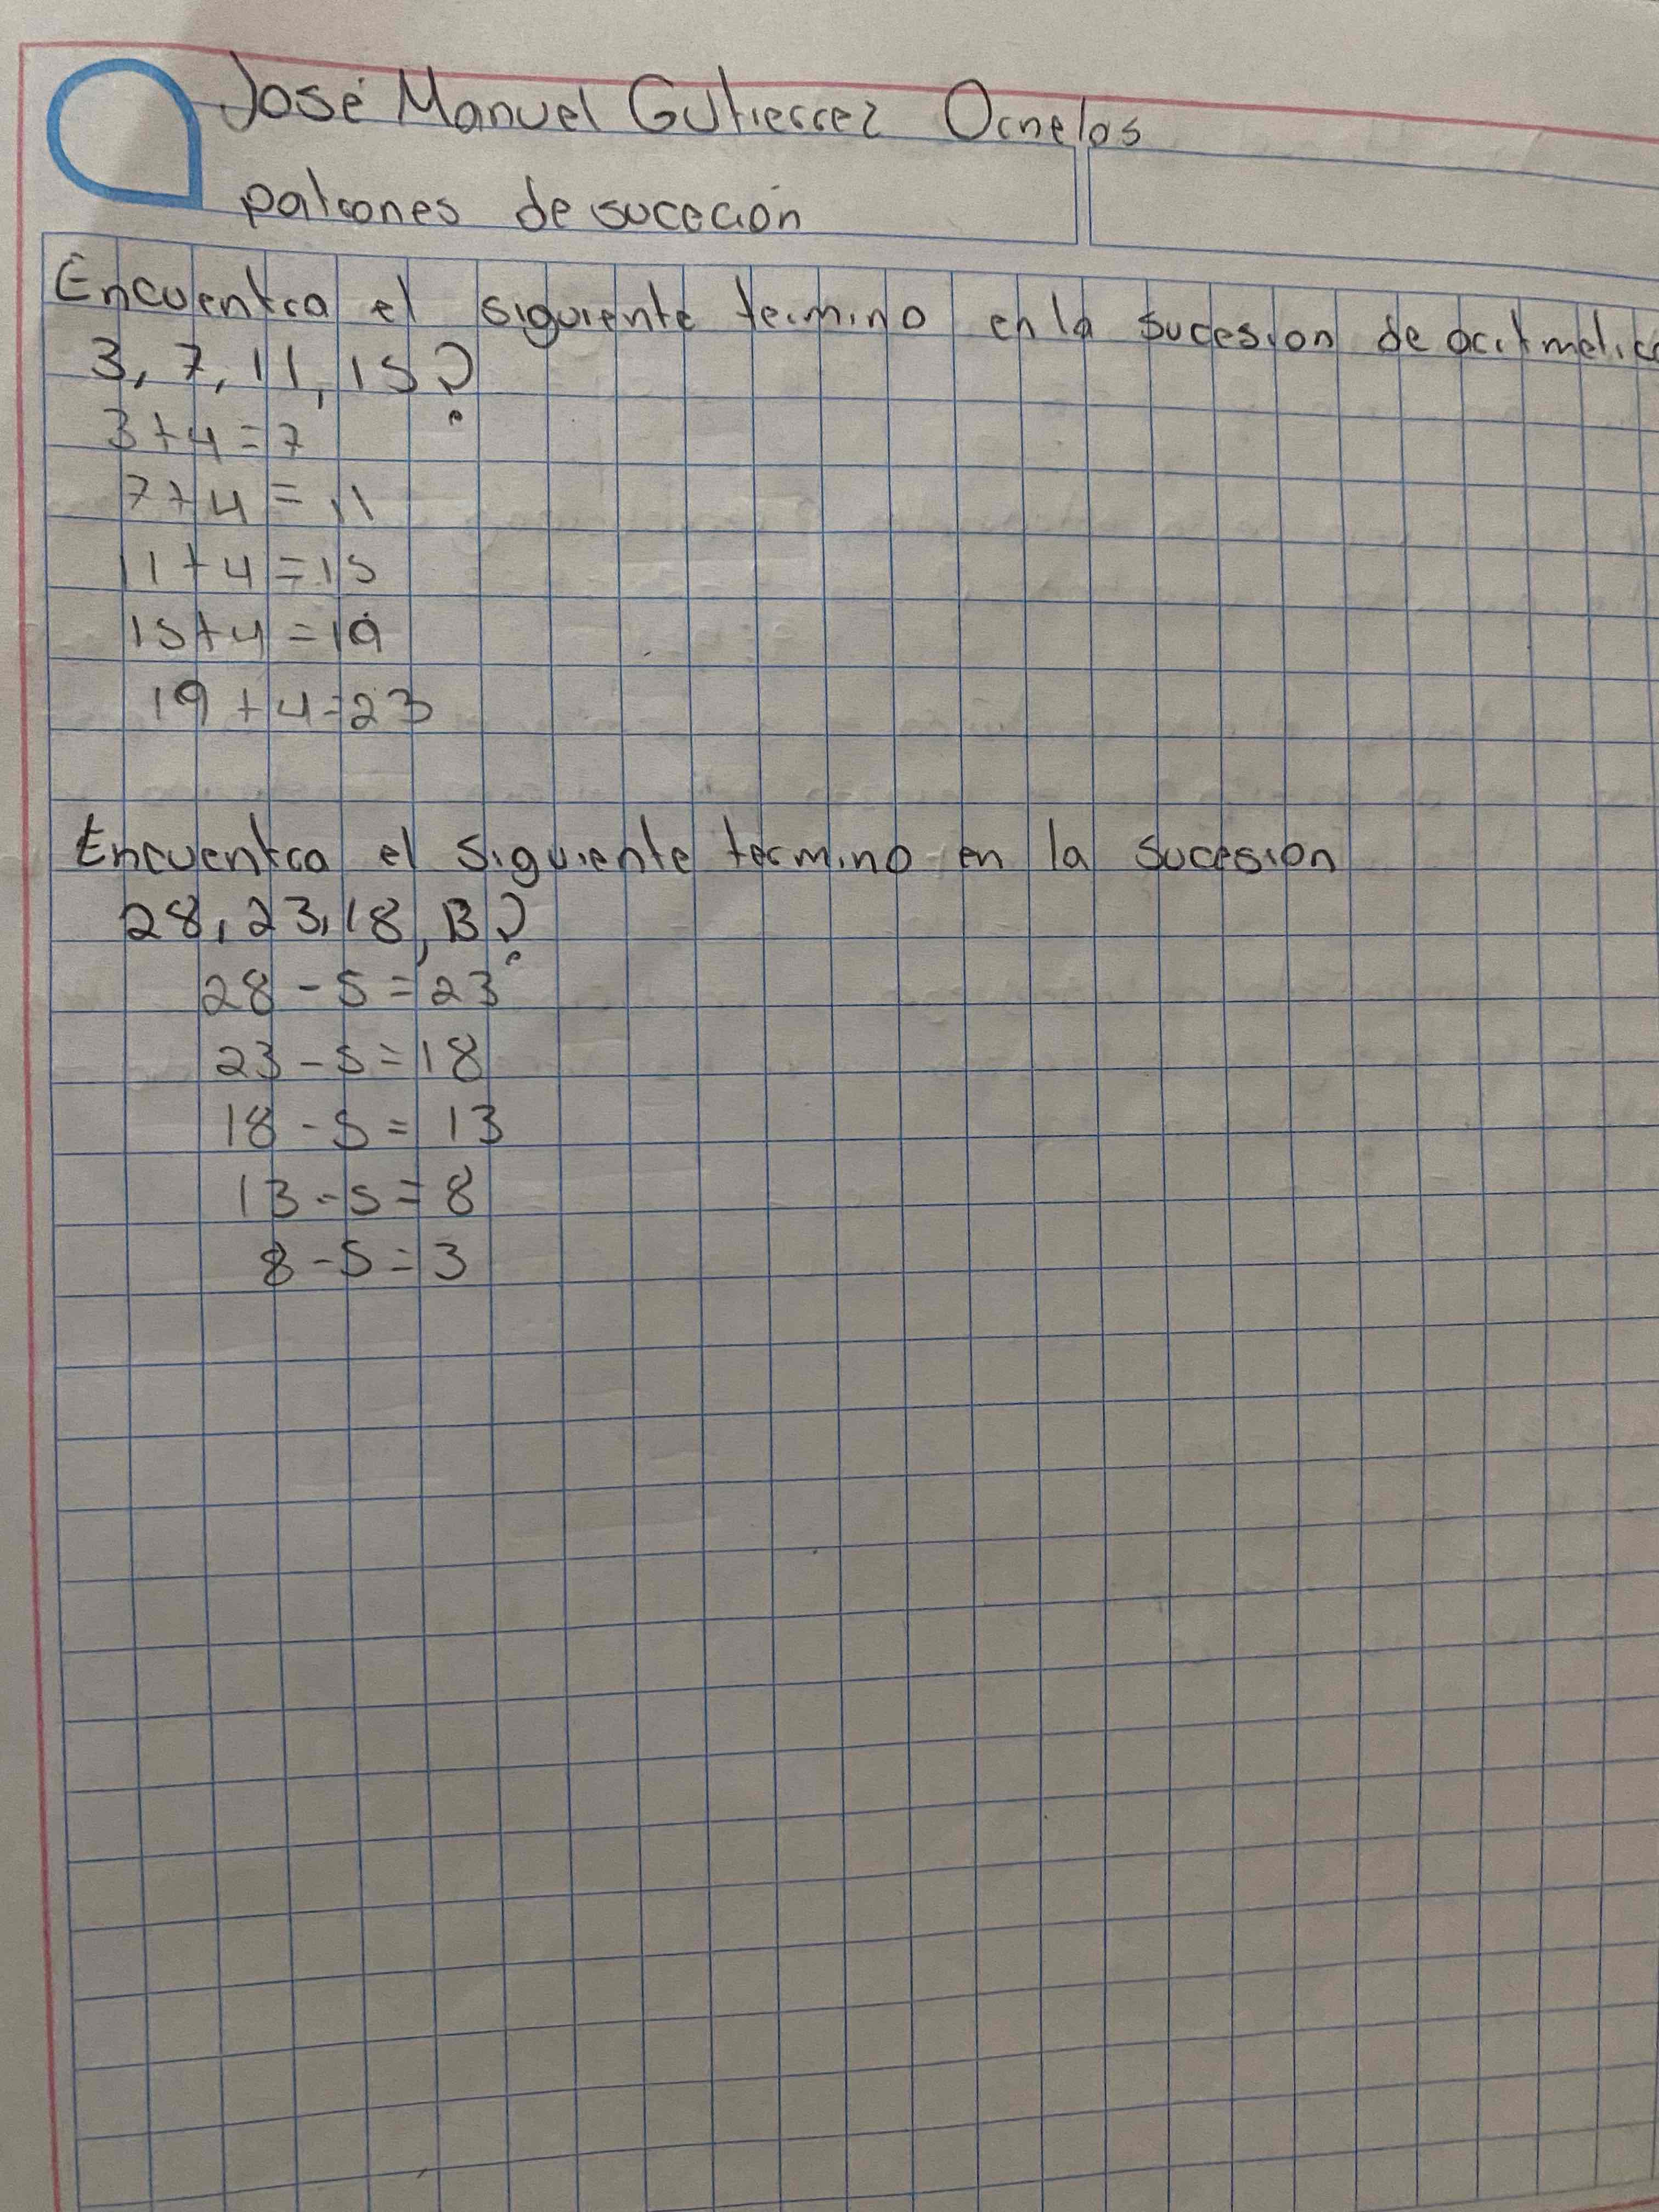 José Manuel Gutierrez Ornelas
patrones de sucecion
Encuentra el siguiente termino en la sucesion de aritmetica
3, 7, 11, 15?
3+4=7
7+4=11
11+4=15
15+4=19
19+4=23
Encuentra el siguiente termino en la sucesion
28, 23, 18, 13?
28-5=23
23-5=18
18-5=13
13-5=8
8-5=3